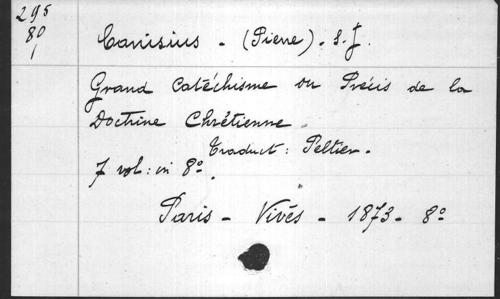 295
80
1
Canisius - (Pierre). S.J.
Grand Catéchisme ou Précis de la
Doctrine Chrétienne
Traduct: Peltier.
7 vol: in 8º.
Paris - Vivès - 1873 - 8º